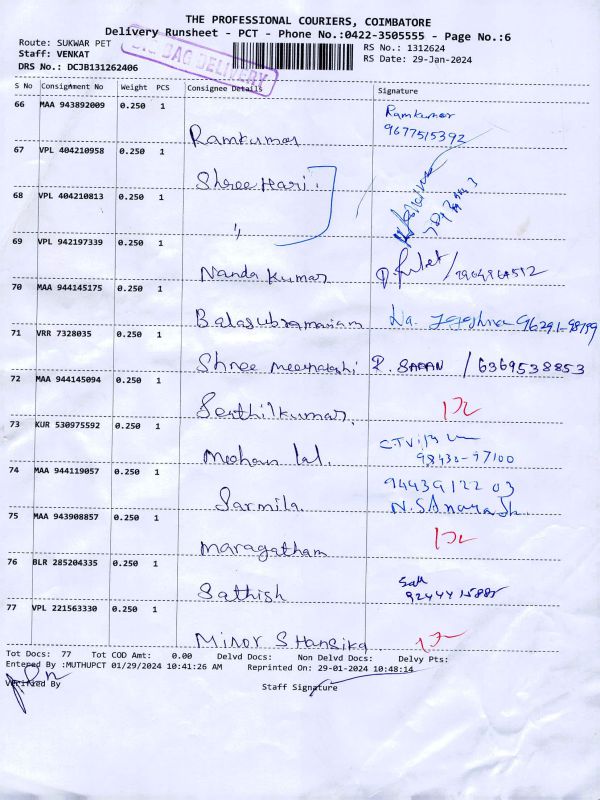 THE PROFESSIONAL COURIERS, COIMBATORE
Delivery Runsheet - PCT - Phone No.:0422-3505555 - Page No.:6
Route: SUKWAR PET
RS No.: 1312624
Staff: VENKAT
RS Date: 29-Jan-2024
DRS No.: DCJB131262406
BAG DELIVERY
S No Consignment No Weight PCS Consignee Details Signature
66 MAA 943892009 0.250 1
Ramkumar
Ramkumar 9677515392
67 VPL 404210958 0.250 1
Shree Hari
68 VPL 404210813 0.250 1
"
69 VPL 942197339 0.250 1
Nanda Kumar
70 MAA 944145175 0.250 1
Balasubramaniam
96291-98799
71 VRR 7328035 0.250 1
Shree meenakshi
/ 6369538853
72 MAA 944145094 0.250 1
Senthilkumar
73 KUR 530975592 0.250 1
Mohan lal.
98432-97100
74 MAA 944119057 0.250 1
Sarmila.
94439122 03
75 MAA 943908857 0.250 1
Maragatham
76 BLR 285204335 0.250 1
Sathish
77 VPL 221563330 0.250 1
Minor S Hansika
Tot Docs: 77 Tot COD Amt: 0.00 Delvd Docs: Non Delvd Docs: Delvy Pts:
Entered By :MUTHUPCT 01/29/2024 10:41:26 AM Reprinted On: 29-01-2024 10:48:14
Verified By
Staff Signature